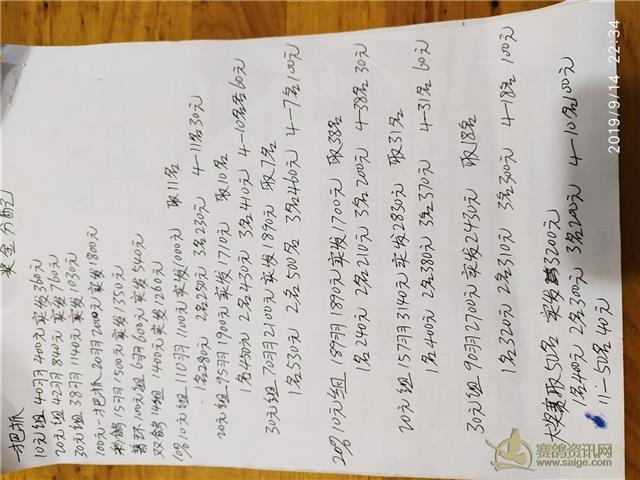 奖金分配
一把抓
10元组 40羽 400元 实发360元
20元组 42羽 840元 实发760元
30元组 38羽 1140元 实发1030元
100元一把抓 20羽 2000元 实发1800元
鸽 15羽 1500元 实发1350元
普环100元组 6羽 600元 实发540元
双鸽 14组 1400元 实发1260元
10名10元组 110羽 1100元 实发1000元 取11名
1名280元 2名250元 3名230元 4—11名30元
20元组 95羽 1900元 实发1710元 取10名
1名450元 2名430元 3名410元 4—10名60元
30元组 70羽 2100元 实发1890元 取7名
1名530元 2名500名 3名460元 4—7名100元
20名10元组 189羽 1890元 实发1700元 取38名
1名240元 2名210元 3名200元 4—38名30元
20元组 157羽 3140元 实发2830元 取31名
1名400元 2名380元 3名370元 4—31名60元
30元组 90羽 2700元 实发2430元 取18名
1名320元 2名310元 3名300元 4—18名100元
大奖赛取50名 实发3200元
1名400元 2名300元 3名200元 4—10名100元
11—50名40元
2019/9/14 22:34
赛鸽资讯网
www.saige.com